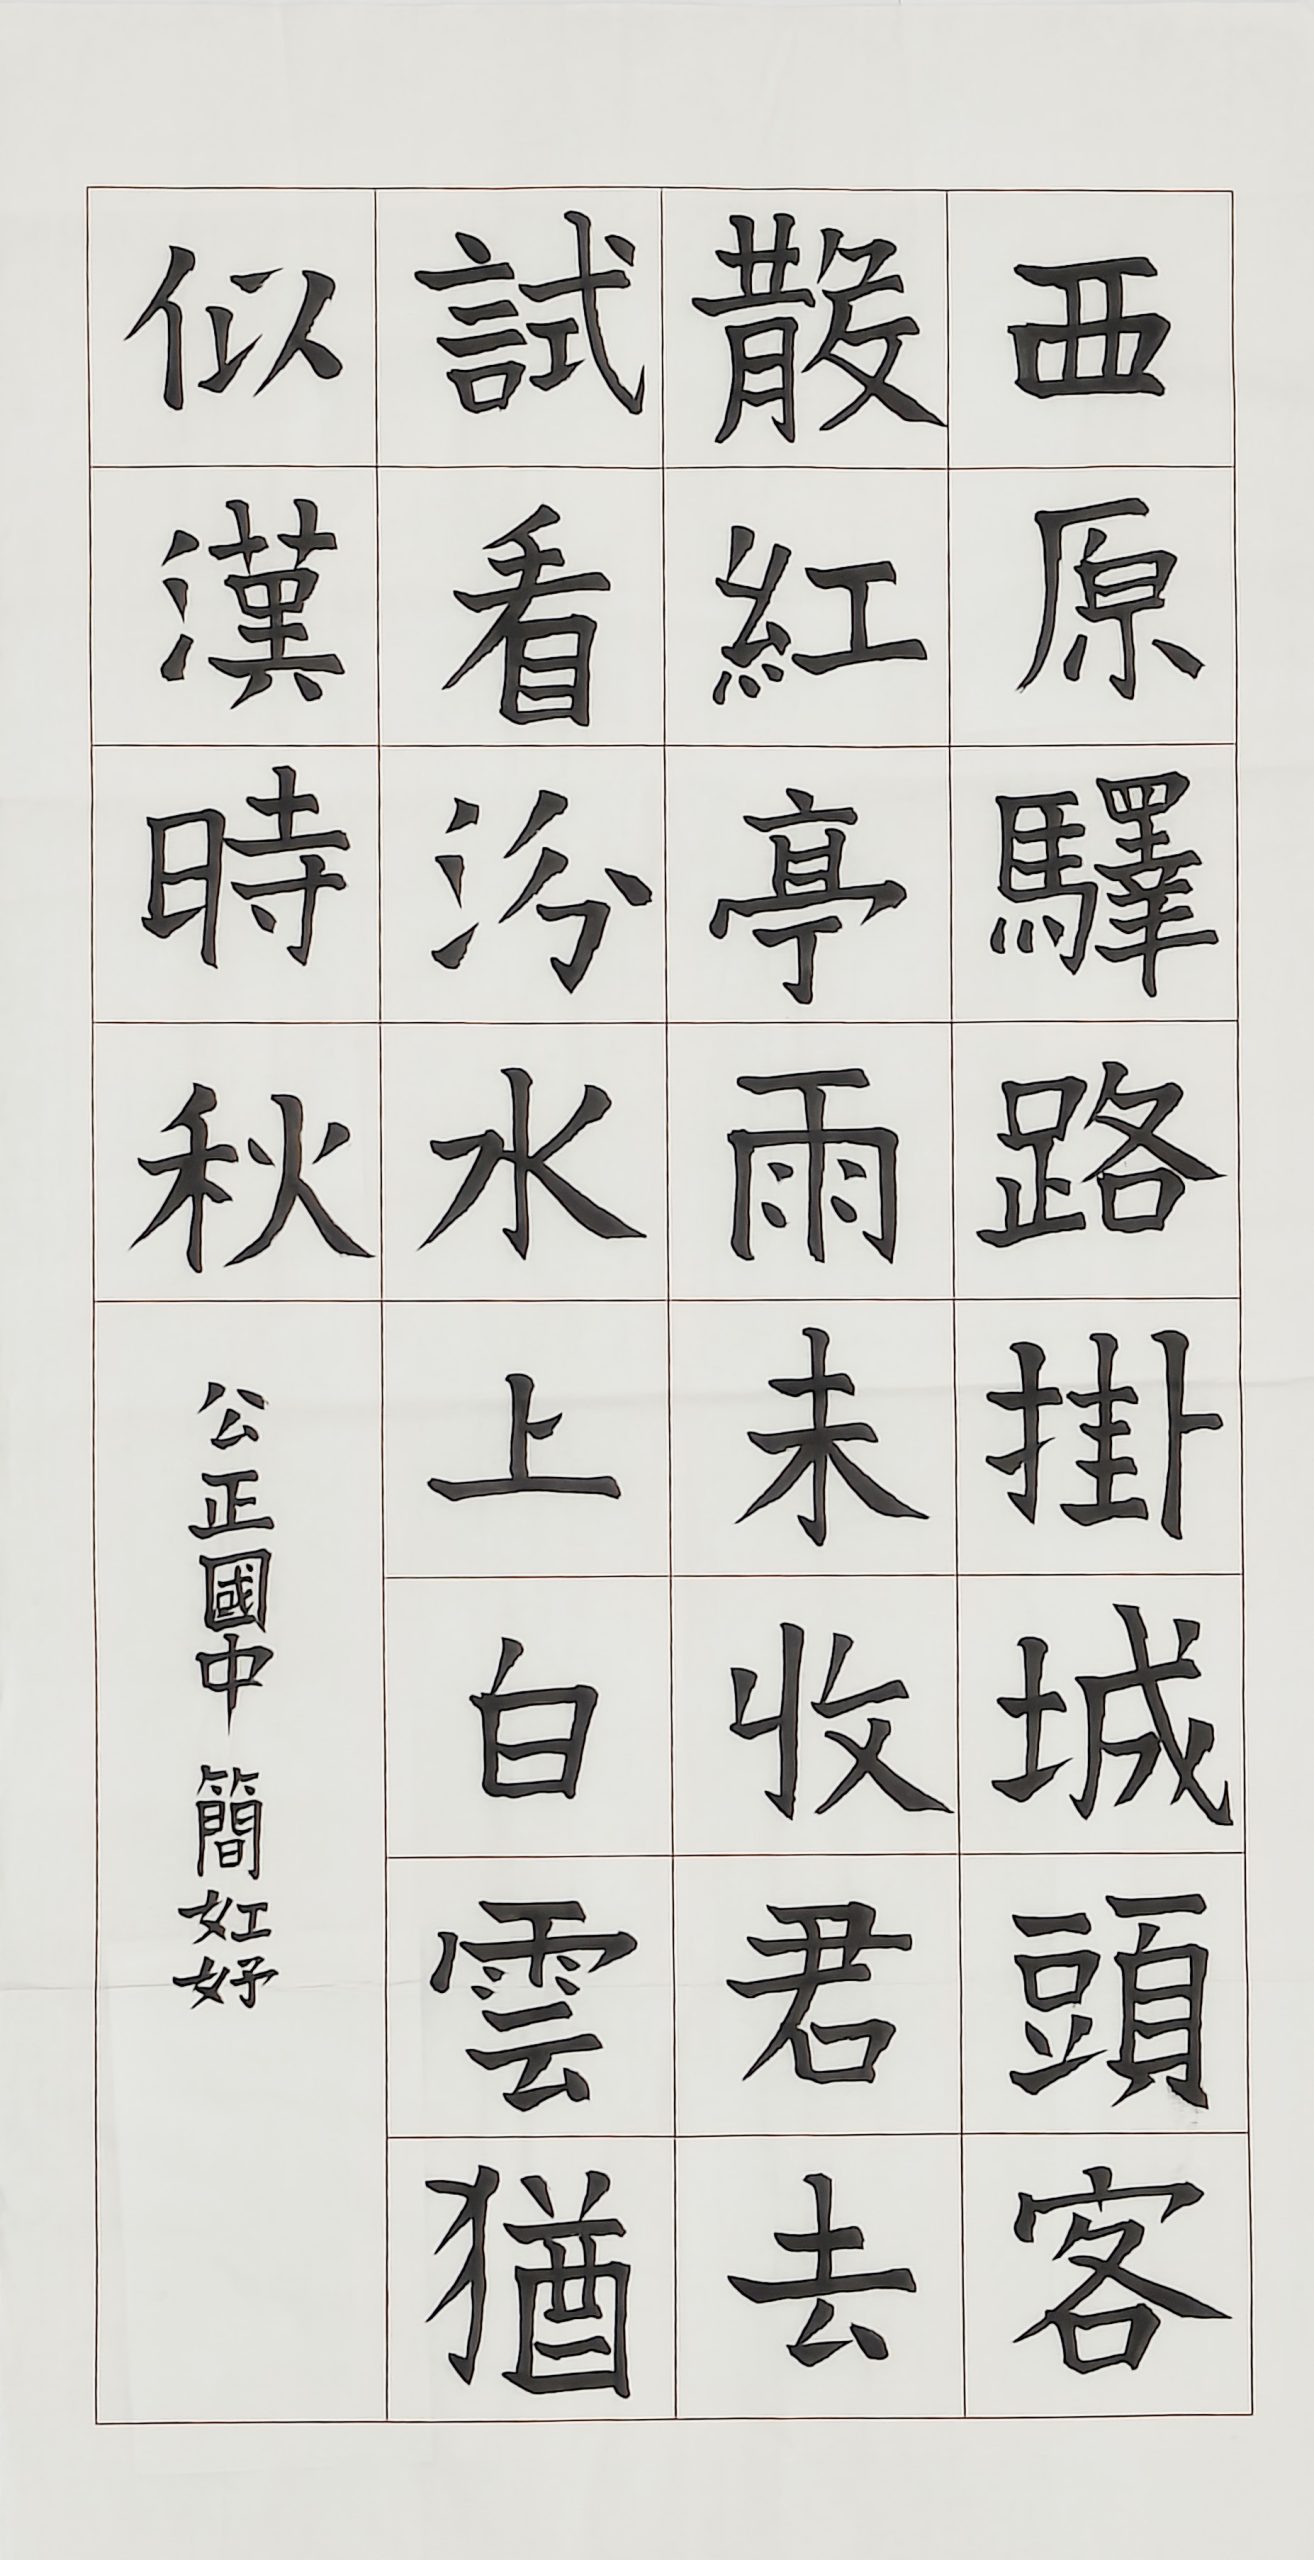 西原驛路掛城頭客
散紅亭雨未收君去
試看汾水上白雲猶
似漢時秋
公正國中 簡妅妤